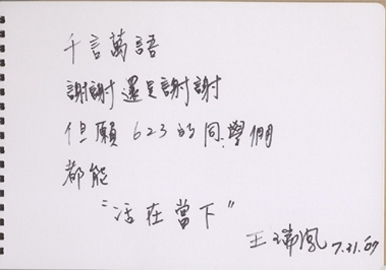 千言萬語
謝謝還是謝謝
但願623的同學們
都能
"活在當下"
王瑞鳳 7.31.09